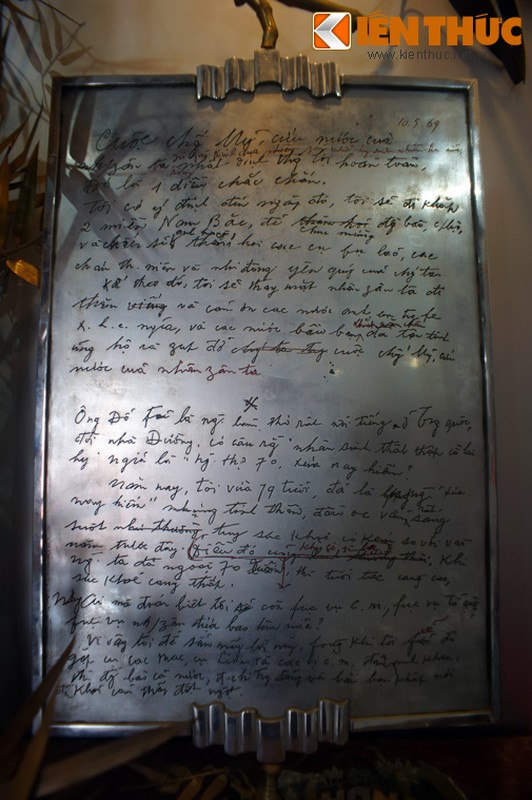 KIẾN THỨC
www.kienthuc.net
10.5.69
Cuộc chố Mỹ, cứu nước của
nhân zân ta
hoàn toàn,
Đó là 1 điều chắc chắn.
Tôi có ý định đến ngày đó, tôi sẽ đi khắp
2 miền Nam Bắc, để thăm hỏi đồng bào,
chúc mừng
thăm hỏi các cụ fụ lão, các
cháu th. niên và nhi đồng yêu quý của chúng ta
Kế theo đó, tôi sẽ thay mặt nhân zân ta đi
thăm và cám ơn các nước anh em
x. h. c. nghĩa, và các nước bầu bạn đã tận tình
ủng hộ và zúp đỡ cuộc chố Mỹ, cứu
nước của nhân zân ta
Ông Đỗ Fủ là ng. làm thơ rất nổi tiếng ở Trg quốc,
đời nhà Đường, có câu rằng "nhân sinh thất thập cổ lai
hy" nghĩa là "ng. thọ 70, xưa nay hiếm"
Năm nay, tôi vừa 79 tuổi, đã là "xưa
nay hiếm" nhưng tinh thần, đầu óc vẫn sáng
suốt, tuy sức khoẻ có kém so với vài
năm trước đây.
Khi
ng. ta đã ngoài 70 xuân, thì tuổi tác càng cao,
sức khoẻ càng thấp.
Ai mà đoán biết tôi sẽ còn fục vụ C.M, fục vụ Tổ quốc
fục vụ nh/zân được bao lâu nữa?
Vì vậy tôi để sẵn mấy lời này, fòng khi tôi
gặp cụ Các Mác, cụ Lênin và các vị c.m. đàn anh khác,
thì đồng bào cả nước, đ.chí trong đảng và bầu bạn khắp nơi
đều khỏi cảm thấy đột ngột.